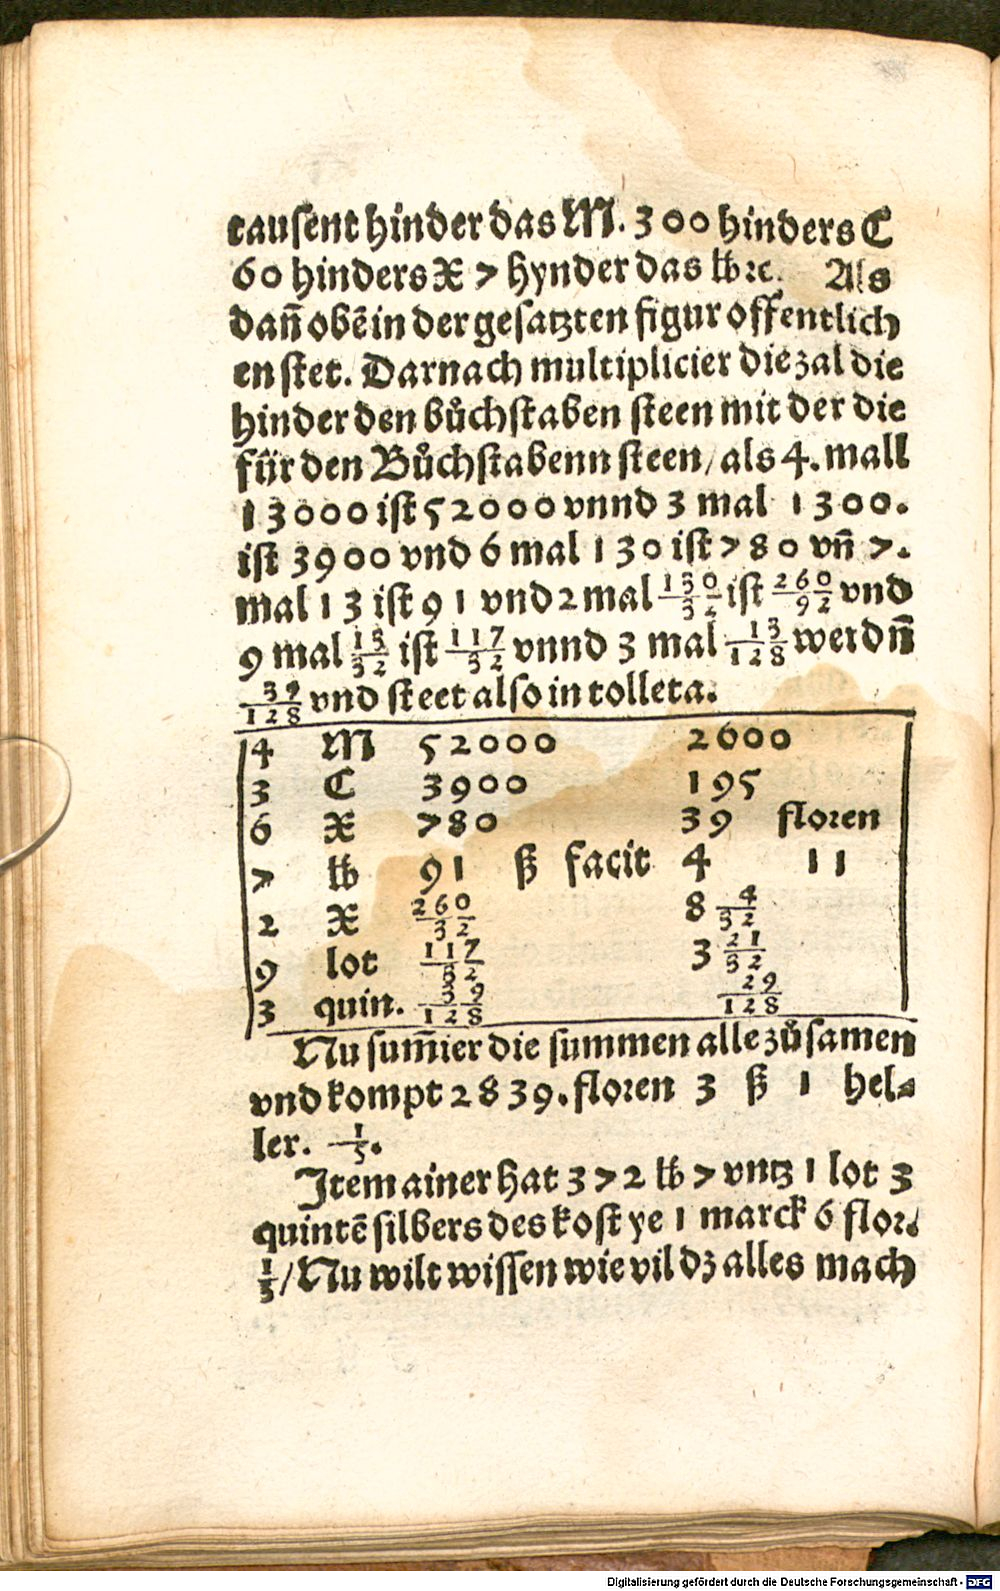 tausent hinder das M. 300 hinders C
60 hinders X 7 hynder das lb ⁊c. Als
dañ obē in der gesatzten figur offentlich
en stet. Darnach multiplicier die zal die
hinder den bůchstaben steen mit der die
für den Bůchstabenn steen / als 4. mall
13000 ist 52000 vnnd 3 mal 1300.
ist 3900 vnd 6 mal 130 ist 780 vñ 7.
mal 13 ist 91 vnd 2 mal 130/32 ist 260/92 vnd
9 mal 13/32 ist 117/32 vnnd 3 mal 13/128 werdñ
39/128 vnd steet also in tolleta.
4 M 52000 2600
3 C 3900 195
6 X 780 39 floren
7 lb 91 ß facit 4 11
2 X 260/32 8 4/32
9 lot 117/32 3 21/32
3 quin. 39/128 29/128
Nu sum̄ier die summen alle zůsamen
vnd kompt 2839. floren 3 ß 1 hel⸗
ler. 1/5.
Item ainer hat 372 lb 7 vntz 1 lot 3
quintē silbers des kost ye 1 marck 6 flor.
1/3 / Nu wilt wissen wie vil dz alles mach
Digitalisierung gefördert durch die Deutsche Forschungsgemeinschaft - DFG